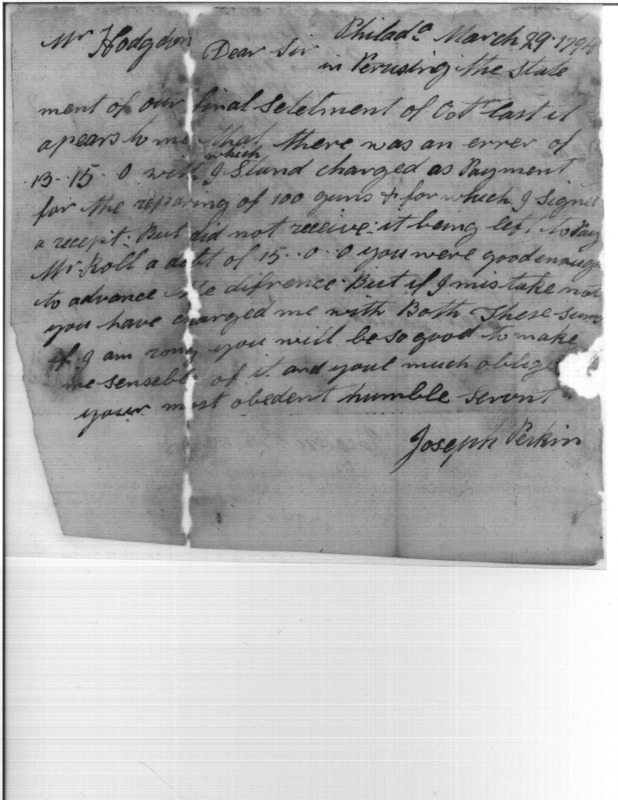 Philada March 29 1794
Mr Hodgdon Dear Sir in Perusing the State
ment of our final Setelment of Octr last it
apears to me that there was an errer of
13 - 15 - 0 with which I Stand charged as Payment
for the reparing of 100 guns & for which I Signed
a recept. But did not receive it being left to Pay
Mr Roll a debt of 15 - 0 - 0 you were good enough
to advance the difrence. But if I mistake not
you have charged me with Both These Sums
if I am rong you will be so good to make
me senseble of it and youl much oblige
your most obedent humble Servnt
Joseph Perkin